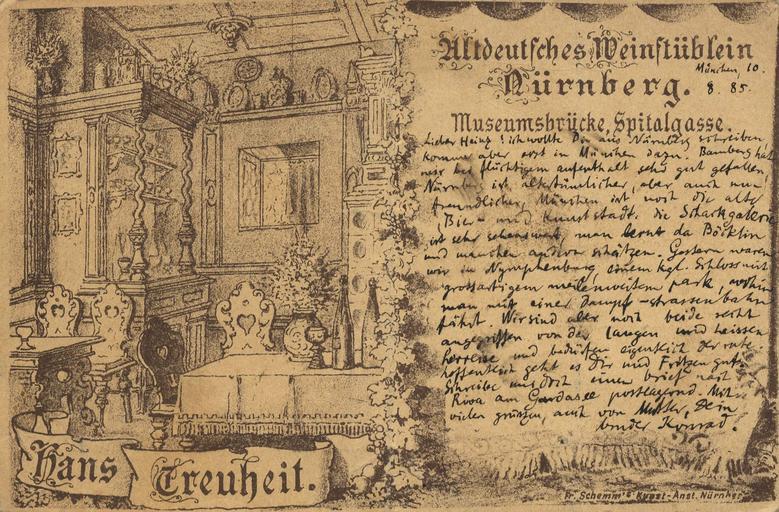 Altdeutsches Weinstüblein
Nürnberg.
München, 10.
8. 85.
Museumsbrücke, Spitalgasse.
Lieber Heinz! ich wollte Dir aus Nürnberg schreiben
komme aber erst in München dazu. Bamberg hat
mir bei flüchtigem aufenthalt sehr gut gefallen,
Nürnberg ist altertümlicher, aber auch
freundlicher, München ist noch die alte
„Bier- und Kunststadt. die Schackgalerie
ist sehr sehenswert, man lernt da Böcklin
und manchen andern schätzen. Gestern waren
wir in Nymphenburg einem kgl. Schloss mit
grossartigem meilenweitem park, wohin
man mit einer Dampf-strassenbahn
fährt. Wir sind aber noch beide recht
angegriffen von der langen und heissen
herreise und bedürfen eigentlich der ruhe
hoffentlich geht es Dir und Fritzen gut.
Schreibe uns doch einen brief nach
Riva am Gardasee postlagernd. Mit
vielen grüssen, auch von Mutter, Dein
bruder Konrad.
Hans Treuheit.
Fr. Schemm's Kunst-Anst. Nürnberg